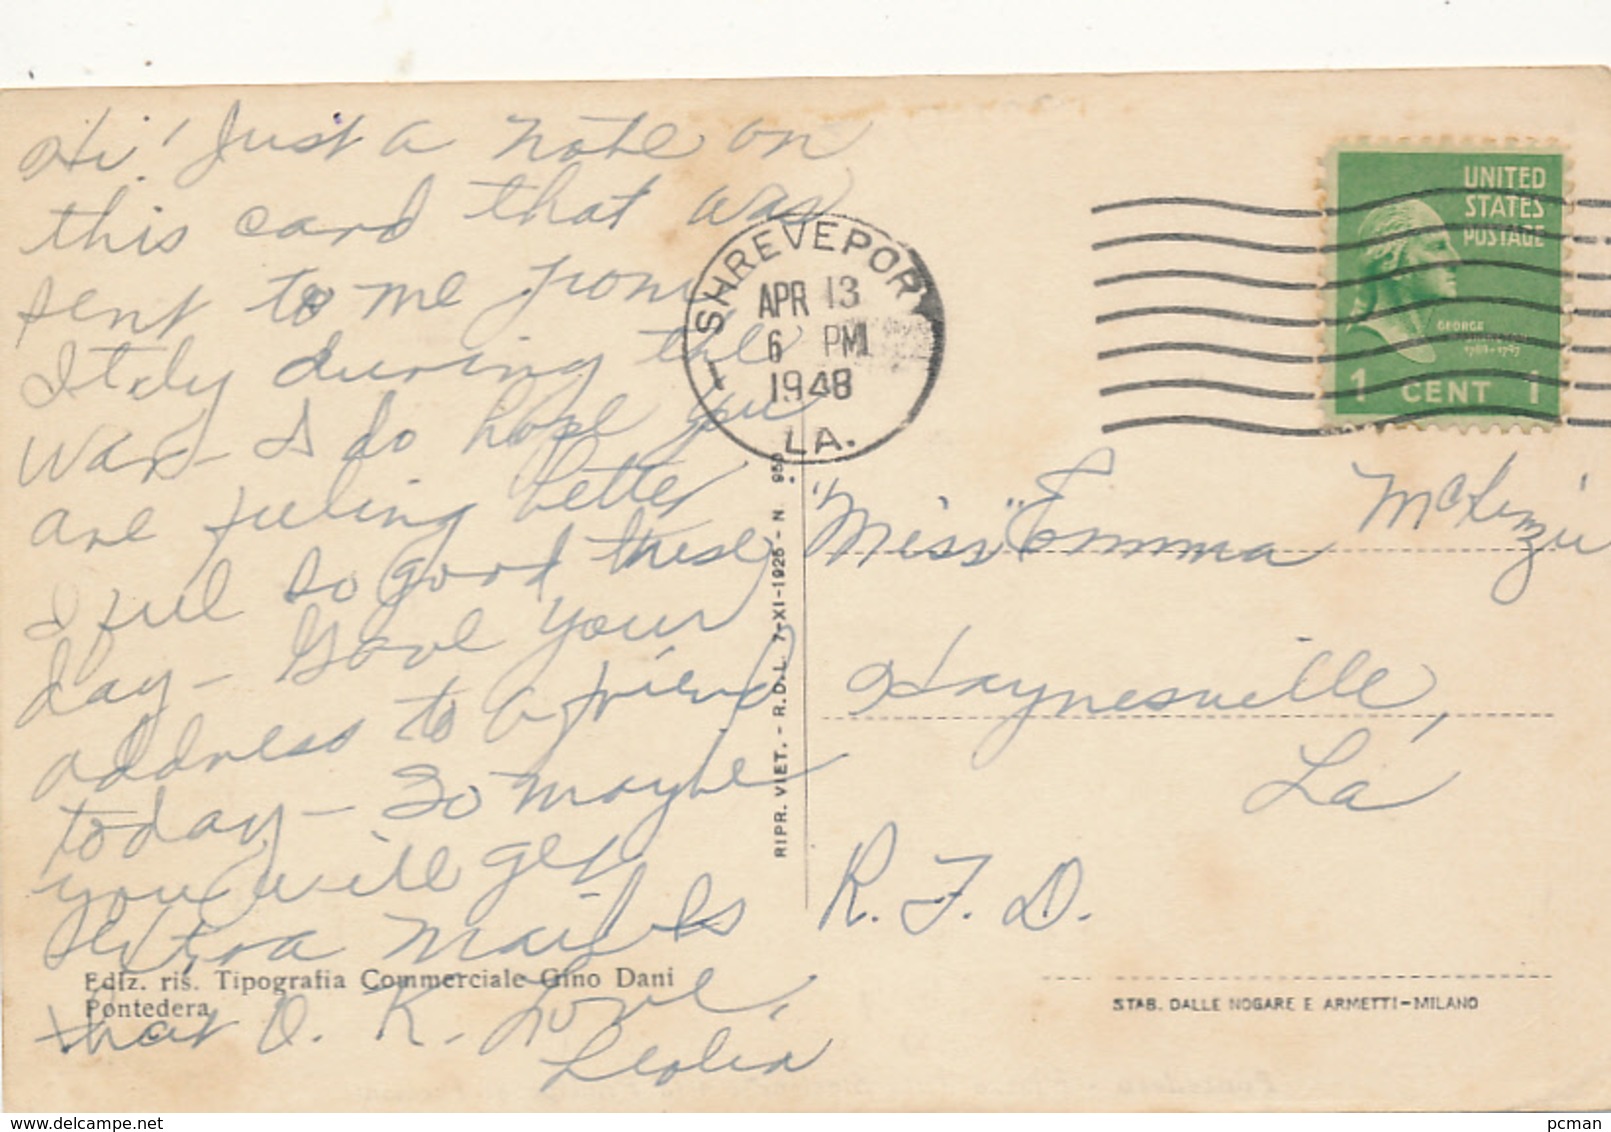 Hi! Just a note on
this card that was
sent to me from
Italy during the
war - I do hope you
are feeling better
I feel so good these
day - Gave your
address to a friend
today - So maybe
you will get
extra mail Is
that O. K. Love,
Leolia
Ediz. ris. Tipografia Commerciale Gino Dani
Pontedera
RIPR. VIET. - R.D.L. 7-XI-1925 - N. 950
SHREVEPORT
APR 13
6 PM
1948
LA.
UNITED
STATES
POSTAGE
GEORGE
1 CENT 1
"Miss" Emma McKenzie
Haynesville,
La
R. F. D.
STAB. DALLE NOGARE E ARMETTI-MILANO
delcampe.net
pcman